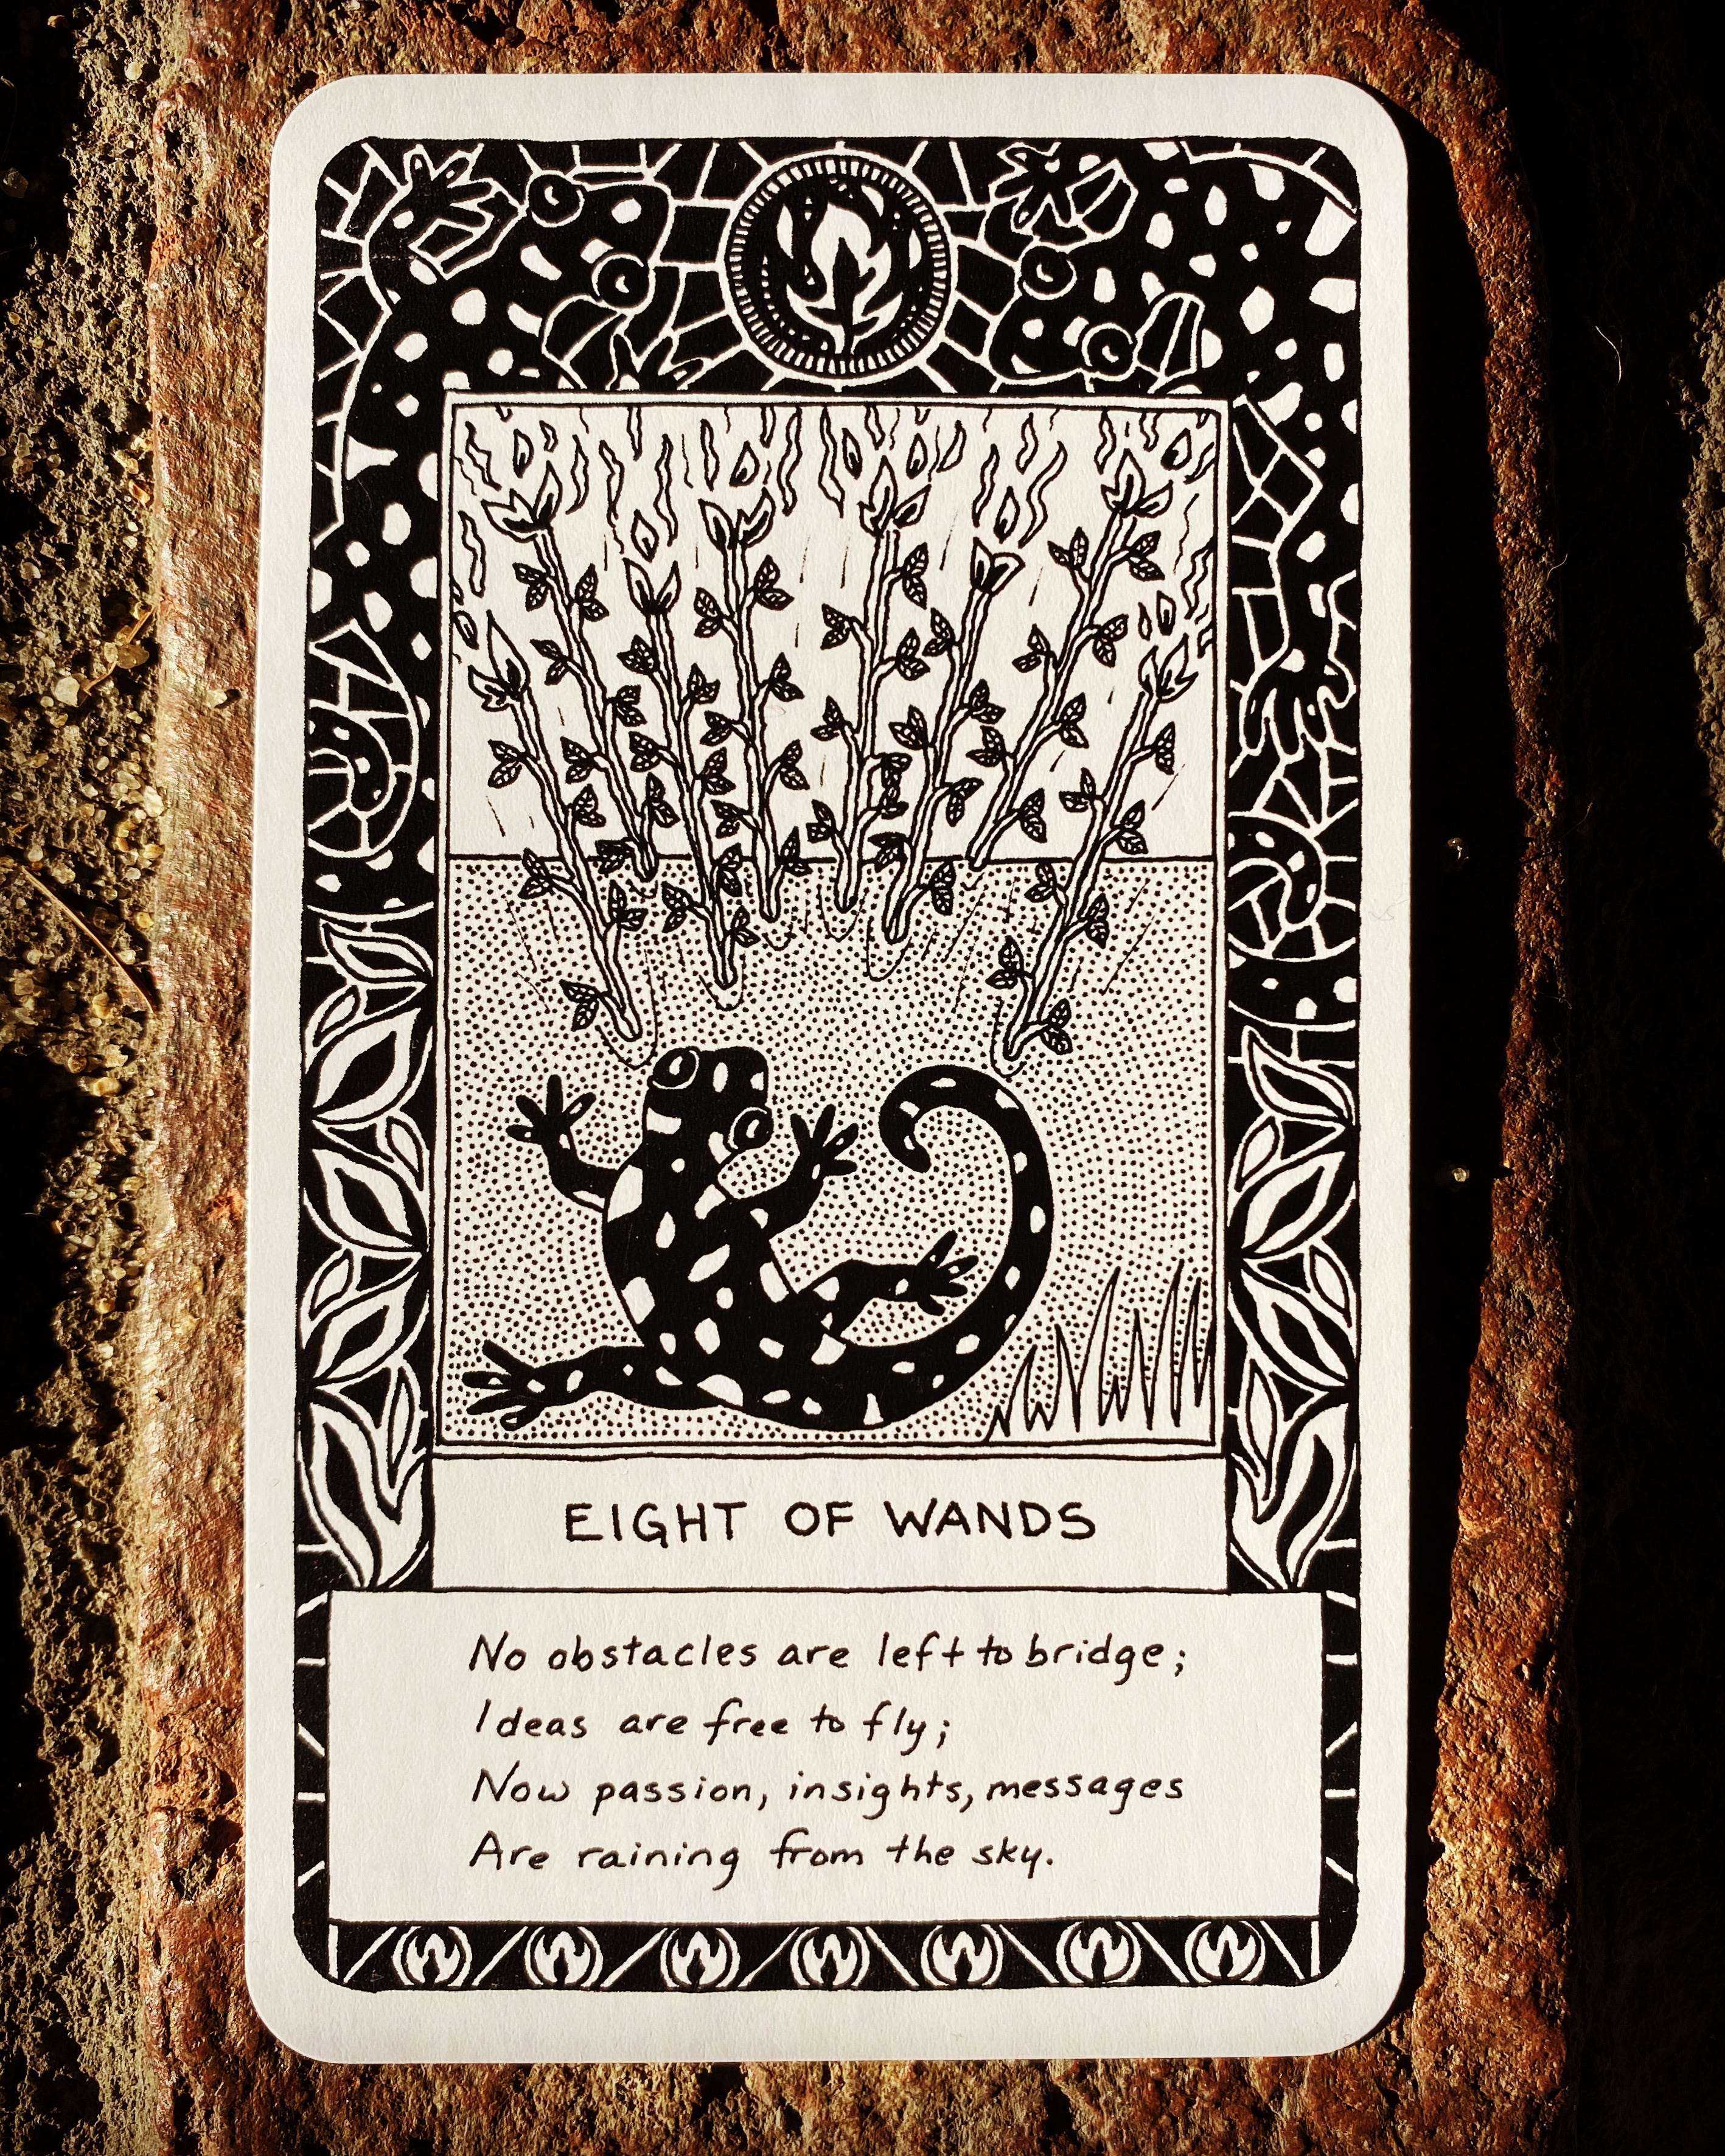 EIGHT OF WANDS
No obstacles are left to bridge;
Ideas are free to fly;
Now passion, insights, messages
Are raining from the sky.